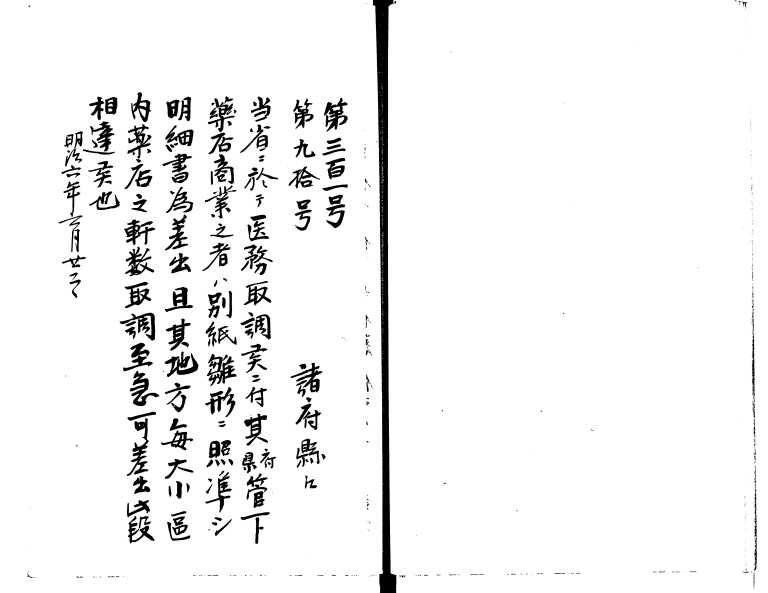 第三百一号
第九拾号　諸府縣江
当省ニ於テ医務取調候ニ付其府県管下
薬店商業之者ハ別紙雛形ニ照準シ
明細書為差出且其地方毎大小區
内薬店之軒数取調至急可差出此段
相達候也
明治六年六月廿